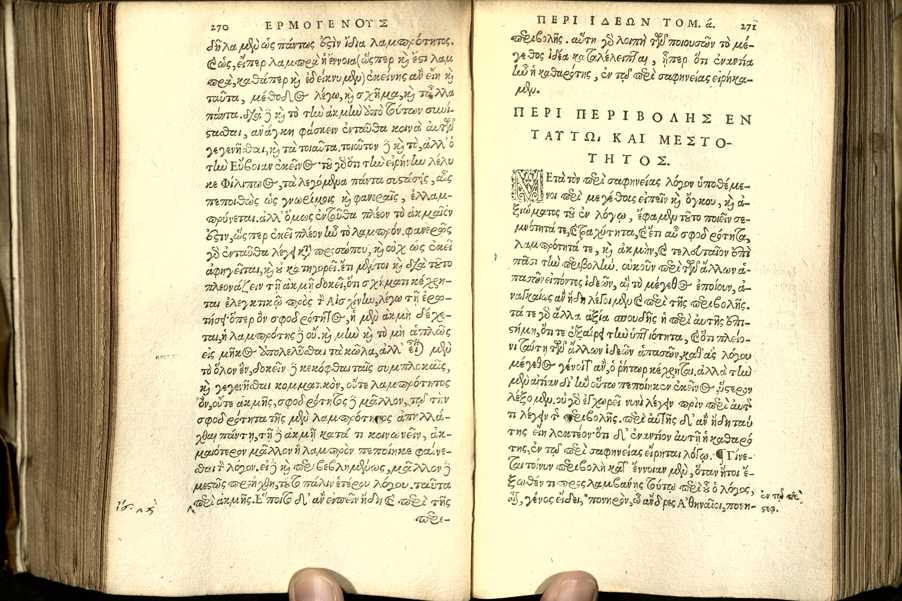 270 ΕΡΜΟΓΕΝΟΥΣ
δῆλα μὲν ὡς πάντως ἐστὶν ἴδια λαμπρότητος.
ἕως, εἴπερ λαμπρὰ ἡ ἔννοια (ὥσπερ καὶ ἔστι λαμ
πρὰ, καθάπερ καὶ ἐδείκνυμεν) ἐκείνης ἂν εἴη καὶ
ταῦτα, μέθοδος λέγω, καὶ σχῆμα, καὶ τἆλλα
πάντα. διὰ δὲ καὶ τὸ τὴν ἀκμὴν ὑπὸ τούτων συνί-
στασθαι, ἀνάγκη φάσκειν ἐνταῦθα κοινὰ αὐτῶν
γεγενῆσθαι, καὶ τὰ τοιαῦτα. τοιοῦτον δὲ καὶ τὸ, ἀλλ' ὁ
τὴν Εὔβοιαν ἐκεῖνος· τοῦ γὰρ ὅτι τὴν εἰρήνην λέλυ
κε Φίλιππος, τὰ λεγόμενα πάντα συστάσης, ὡς
πεποιθὼς ὡς γνωρίμοις καὶ φανεροῖς, ἐλλαμ-
πρύνεται. ἀλλ' ὅμως ἐνταῦθα πλέον τὸ ἀκμαῖόν
ἐστιν, ὥσπερ ἐκεῖ πλέον ἦν τὸ λαμπρόν. φανερῶς
γὰρ ἐνταῦθα λέγει κατὰ προσώπου, καὶ οὐχ ὡς ἐκεῖ
ἀφηγεῖται, καὶ οὐ κατηγορεῖ. ἔτι μέντοι καὶ διὰ τοῦτο
πλεονάζειν τῇ ἀκμῇ δοκεῖ, ὅτι σχήματι κέχρη-
ται ἐλεγκτικῷ πρὸς τὸν Αἰσχίνην, λέγω τῇ ἐρω-
τήσει· ὅπερ ὂν σφοδρότητος, ἡ μὲν ἀκμὴ δέχε-
ται, ἡ λαμπρότης δὲ οὔ. καὶ μὴν καὶ τὸ μὴ ἁπλῶς
εἰς μῆκος ἀπολελύσθαι τὰ κῶλα, ἀλλ' εἶναι μὲν
τὸ ὅλον ἓν, δοκεῖν δὲ κεκόφθαι ταῖς συμπλοκαῖς,
καὶ γεγενῆσθαι κομματικὸν, οὔτε λαμπρότητος
ὂν, οὔτε ἀκμῆς, σφοδρότητος δὲ μᾶλλον, πρὸς τὴν
σφοδρότητα τῆς μὲν λαμπρότητος ἀπηλλά-
χθαι πάντη, τῇ δὲ ἀκμῇ κατά τι κοινωνεῖν, ἀκ-
μαιότερον μᾶλλον ἢ λαμπρὸν πεποίηκε φαίνε-
σθαι τὸν λόγον. εἰ δὲ καὶ περιβεβλημένως, μᾶλλον δὲ
μεστῶς προήχθη, τοῦτο πάλιν ἑτέρου λόγου. ταῦτα
περὶ ἀκμῆς. Ἕποιτο δ' ἂν εἰπεῖν ἤδη καὶ περὶ τῆς
περι-
ΠΕΡΙ ΙΔΕΩΝ ΤΟΜ. ά. 271
περιβολῆς. αὕτη γὰρ λοιπὴ τῶν ποιουσῶν τὸ μέ-
γεθος ἰδέα καταλέλειπται, ἥπερ ὅτι ἐναντία
ἦν ἡ καθαρότης, ἐν τῷ περὶ σαφηνείας εἰρήκα-
μεν.
ΠΕΡΙ ΠΕΡΙΒΟΛΗΣ ΕΝ
ΤΑΥΤΩ, ΚΑΙ ΜΕΣΤΟ-
ΤΗΤΟΣ.
ΜΕτὰ τὸν περὶ σαφηνείας λόγον ὑποθέμε-
νοι περὶ μεγέθους εἰπεῖν καὶ ὄγκου, καὶ ἀ-
ξιώματος τοῦ ἐν λόγῳ, ἔφαμεν τοῦτο ποιεῖν σε-
μνότητά τε, καὶ τραχύτητα, καὶ ἔτι αὖ σφοδρότητα,
λαμπρότητά τε, καὶ ἀκμὴν, καὶ τελευταῖον ἐπὶ
πᾶσι τὴν περιβολήν. οὐκοῦν περὶ τῶν ἄλλων ἁ-
πασῶν εἰπόντες ἰδεῶν, αἳ τὸ μέγεθος ἐποίουν, ἀ-
ναγκαίως ἂν ἤδη λέγοιμεν καὶ περὶ τῆς περιβολῆς.
τά τε γὰρ ἄλλα ἀξία σπουδῆς ἡ περὶ αὐτῆς ἐπι-
στήμη, ὅτι τε ἐξαίρει τὴν ὑπτιότητα, καὶ ὅτι πλείο-
νι ταύτῃ τῶν ἄλλων ἰδεῶν ἁπασῶν, καθ' ἃς λόγου
μέγεθος γένοιτ' ἂν, ὁ ῥήτωρ κέχρηται. ἀλλὰ τὴν
μὲν αἰτίαν δι' ἣν οὕτω πεποίηκεν ἐκεῖνος, ὕστερον
λέξομεν. οὐ γὰρ ἐγχωρεῖ νυνὶ λέγειν πρὶν περὶ αὐτῆς
τι λέγειν τῆς περιβολῆς. περὶ αὐτῆς δ' ἂν ἤδη ταύ
της εἴη λεκτέον· ὅτι δ' ἐναντίον αὐτῇ ἡ καθαρό
της, ἐν τῷ περὶ σαφηνείας εἴρηται λόγῳ. ¶ Γίνε-
ται τοίνυν περιβολὴ κατ' ἔννοιαν μὲν, ὅταν ἤτοι ἔ-
ξωθέν τι προσλαμβάνῃς τούτῳ περὶ οὗ ὁ λόγος,
οἷον, γένος εἴδει, πονηρὸν, ὦ ἄνδρες Ἀθηναῖοι, πονη-